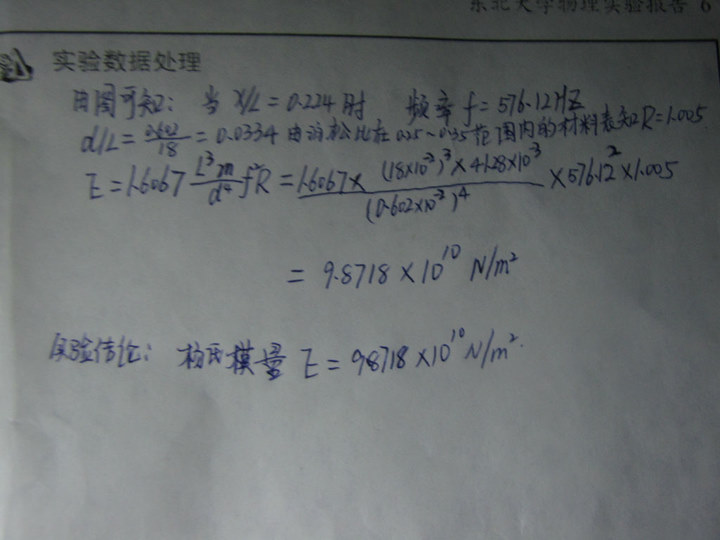 东北大学物理实验报告 6
实验数据处理
由图可知: 当 X/L = 0.224时 频率 f = 576.12HZ
d/L = 0.602/18 = 0.0334 由泊松比在 0.25~0.35范围内的材料表知R=1.005
E = 1.6067 L³m/d⁴ f²R = 1.6067× (18×10⁻²)³×41.28×10³/(0.602×10⁻²)⁴ ×576.12²×1.005
= 9.8718 × 10¹⁰ N/m²
实验结论: 杨氏模量 E = 9.8718 ×10¹⁰ N/m².